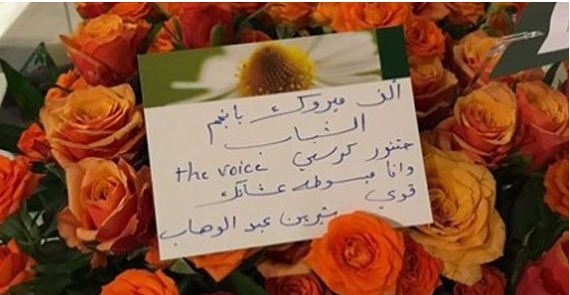 ألف مبروك يا نجم
الشباب
حتنور كرسي the voice
وانا مبسوطه عشانك
قوي
شيرين عبد الوهاب